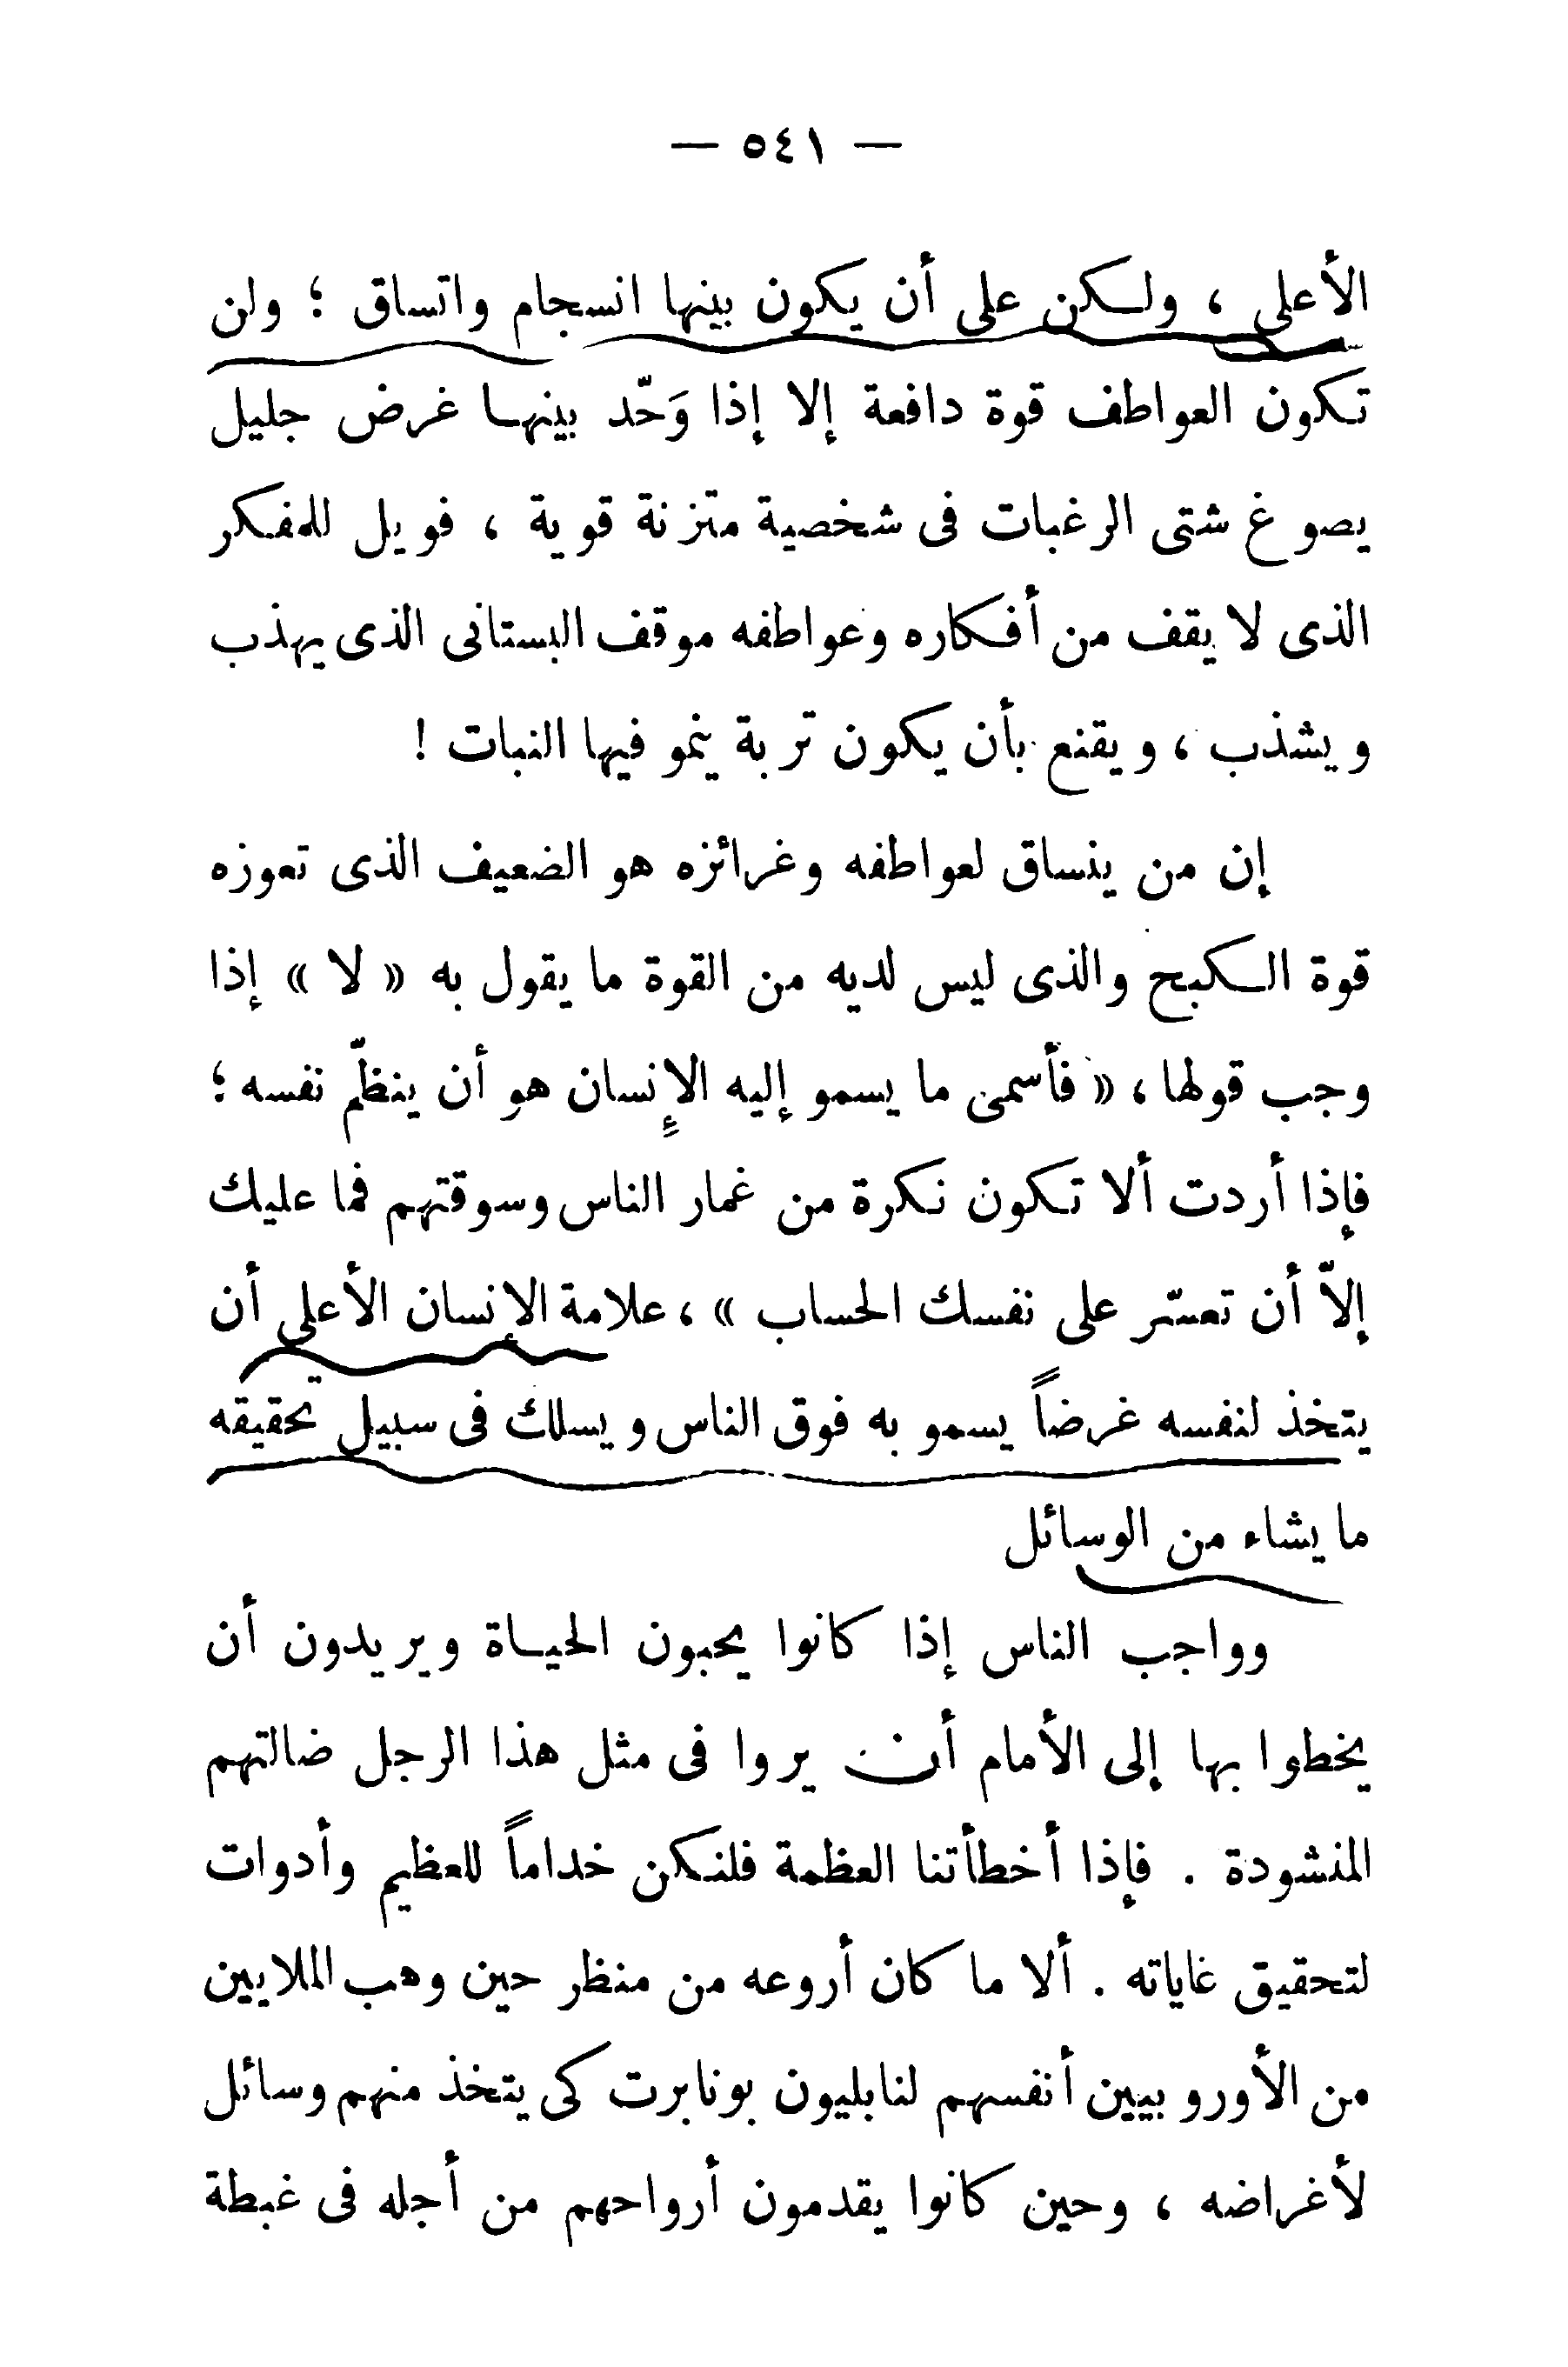 — ٥٤١ —
الأعلى ، ولكن على أن يكون بينها انسجام واتساق ؛ ولن
تكون العواطف قوة دافعة إلا إذا وَحّد بينها غرض جليل
يصوغ شتى الرغبات فى شخصية متزنة قوية ، فويل للمفكر
الذى لا يقف من أفكاره وعواطفه موقف البستانى الذى يهذب
ويشذب ، ويقنع بأن يكون تربة ينمو فيها النبات !
إن من ينساق لعواطفه وغرائزه هو الضعيف الذى تعوزه
قوة الكبح والذى ليس لديه من القوة ما يقول به « لا » إذا
وجب قولها ، « فأسمى ما يسمو إليه الإِنسان هو أن ينظّم نفسه ؛
فإذا أردت ألا تكون نكرة من غمار الناس وسوقتهم فما عليك
إلاّ أن تعسّر على نفسك الحساب » ، علامة الإنسان الأعلى أن
يتخذ لنفسه غرضاً يسمو به فوق الناس ويسلك فى سبيل تحقيقه
ما يشاء من الوسائل
وواجب الناس إذا كانوا يحبون الحياة ويريدون أن
يخطوا بها إلى الأمام أن يروا فى مثل هذا الرجل ضالتهم
المنشودة . فإذا أخطأتنا العظمة فلنكن خداماً للعظيم وأدوات
لتحقيق غاياته . ألا ما كان أروعه من منظر حين وهب الملايين
من الأوروبيين أنفسهم لنابليون بونابرت كى يتخذ منهم وسائل
لأغراضه ، وحين كانوا يقدمون أرواحهم من أجله فى غبطة